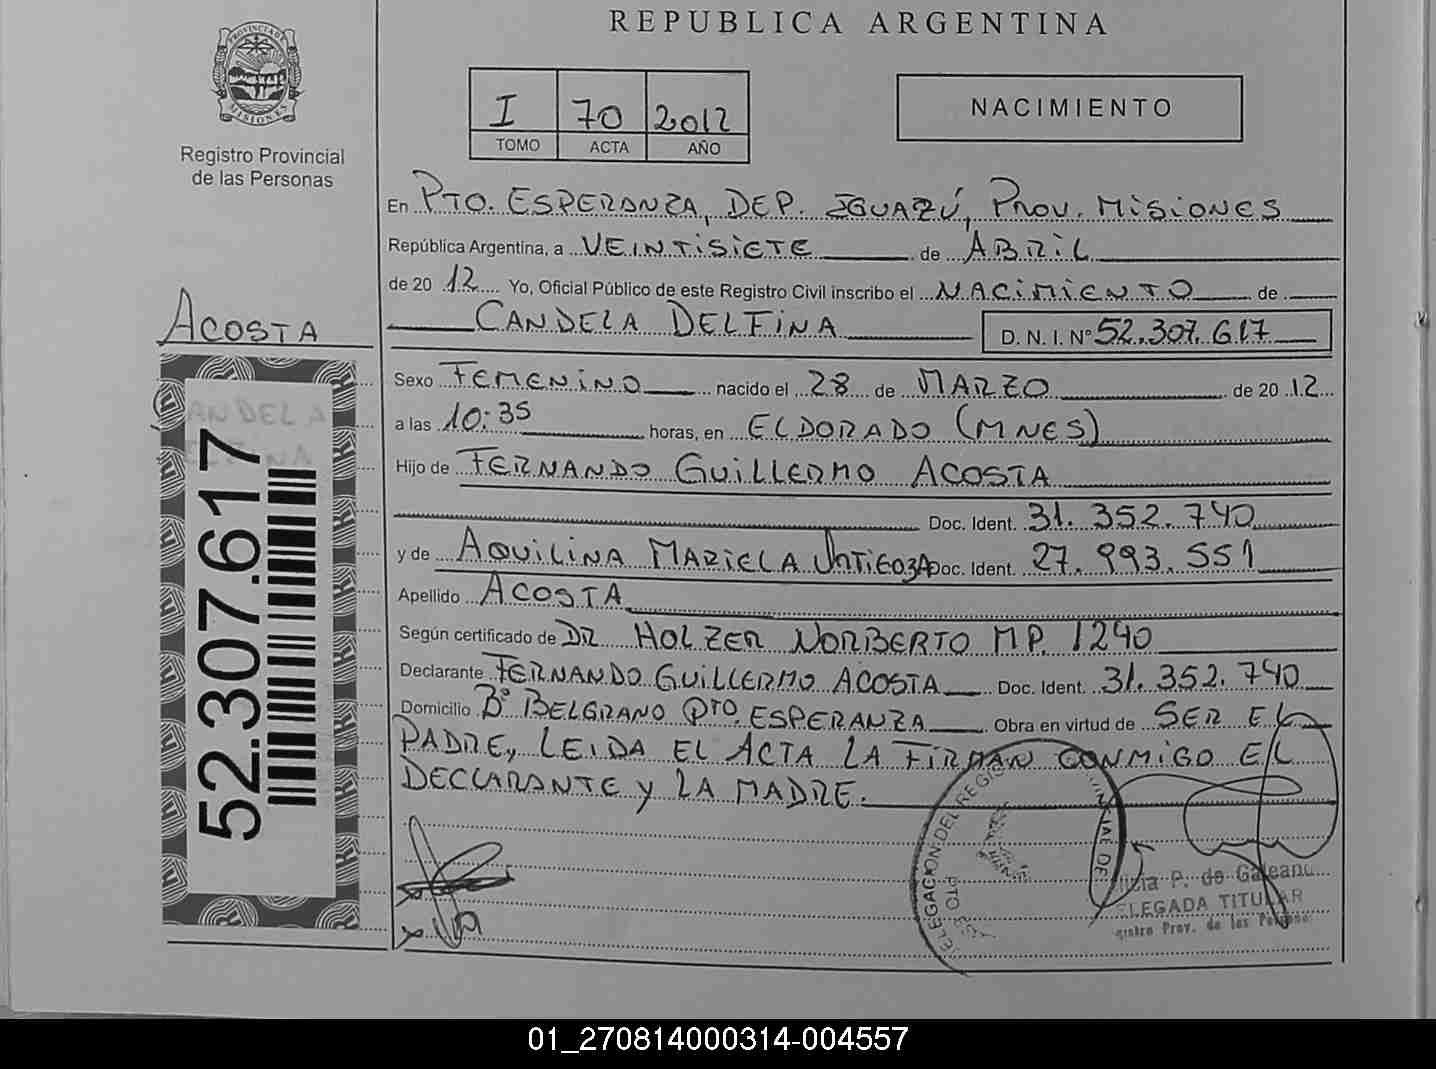 REPUBLICA ARGENTINA
PROVINCIA DE
MISIONES
Registro Provincial
de las Personas
I 70 2012
TOMO ACTA AÑO
NACIMIENTO
En PTO. ESPERANZA, DEP. IGUAZÚ, PROV. MISIONES
República Argentina, a VEINTISIETE de ABRIL
de 20 12 Yo, Oficial Público de este Registro Civil inscribo el NACIMIENTO de
ACOSTA
CANDELA DELFINA D. N. I. Nº 52.307.617
Sexo FEMENINO nacido el 28 de MARZO de 20 12
a las 10:35 horas, en ELDORADO (MNES)
Hijo de FERNANDO GUILLERMO ACOSTA
Doc. Ident. 31.352.740
y de AQUILINA MARIELA Doc. Ident. 27.993.551
Apellido ACOSTA
Según certificado de DR HOLZER NORBERTO MP. 1240
Declarante FERNANDO GUILLERMO ACOSTA Doc. Ident. 31.352.740
Domicilio Bº BELGRANO PTO. ESPERANZA Obra en virtud de SER EL
PADRE, LEIDA EL ACTA LA FIRMAN CONMIGO EL
DECLARANTE Y LA MADRE.
52.307.617
DELEGACION DEL REGIS
P. de Galeano
LEGADA TITULAR
Prov. de las
01_270814000314-004557